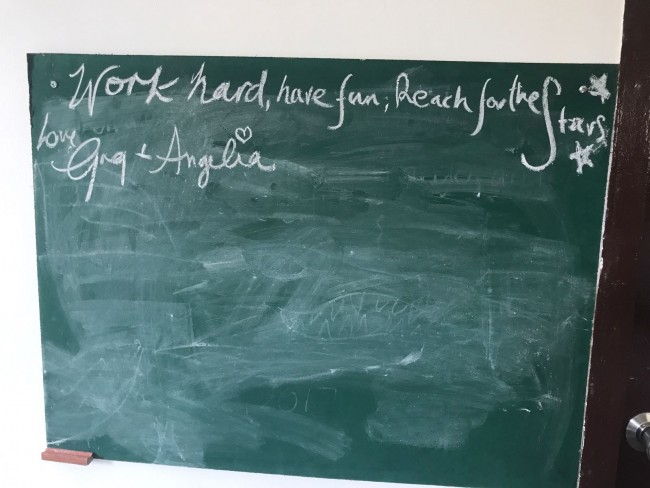 Work hard, have fun, Reach for the Stars
Love Greg + Angelia